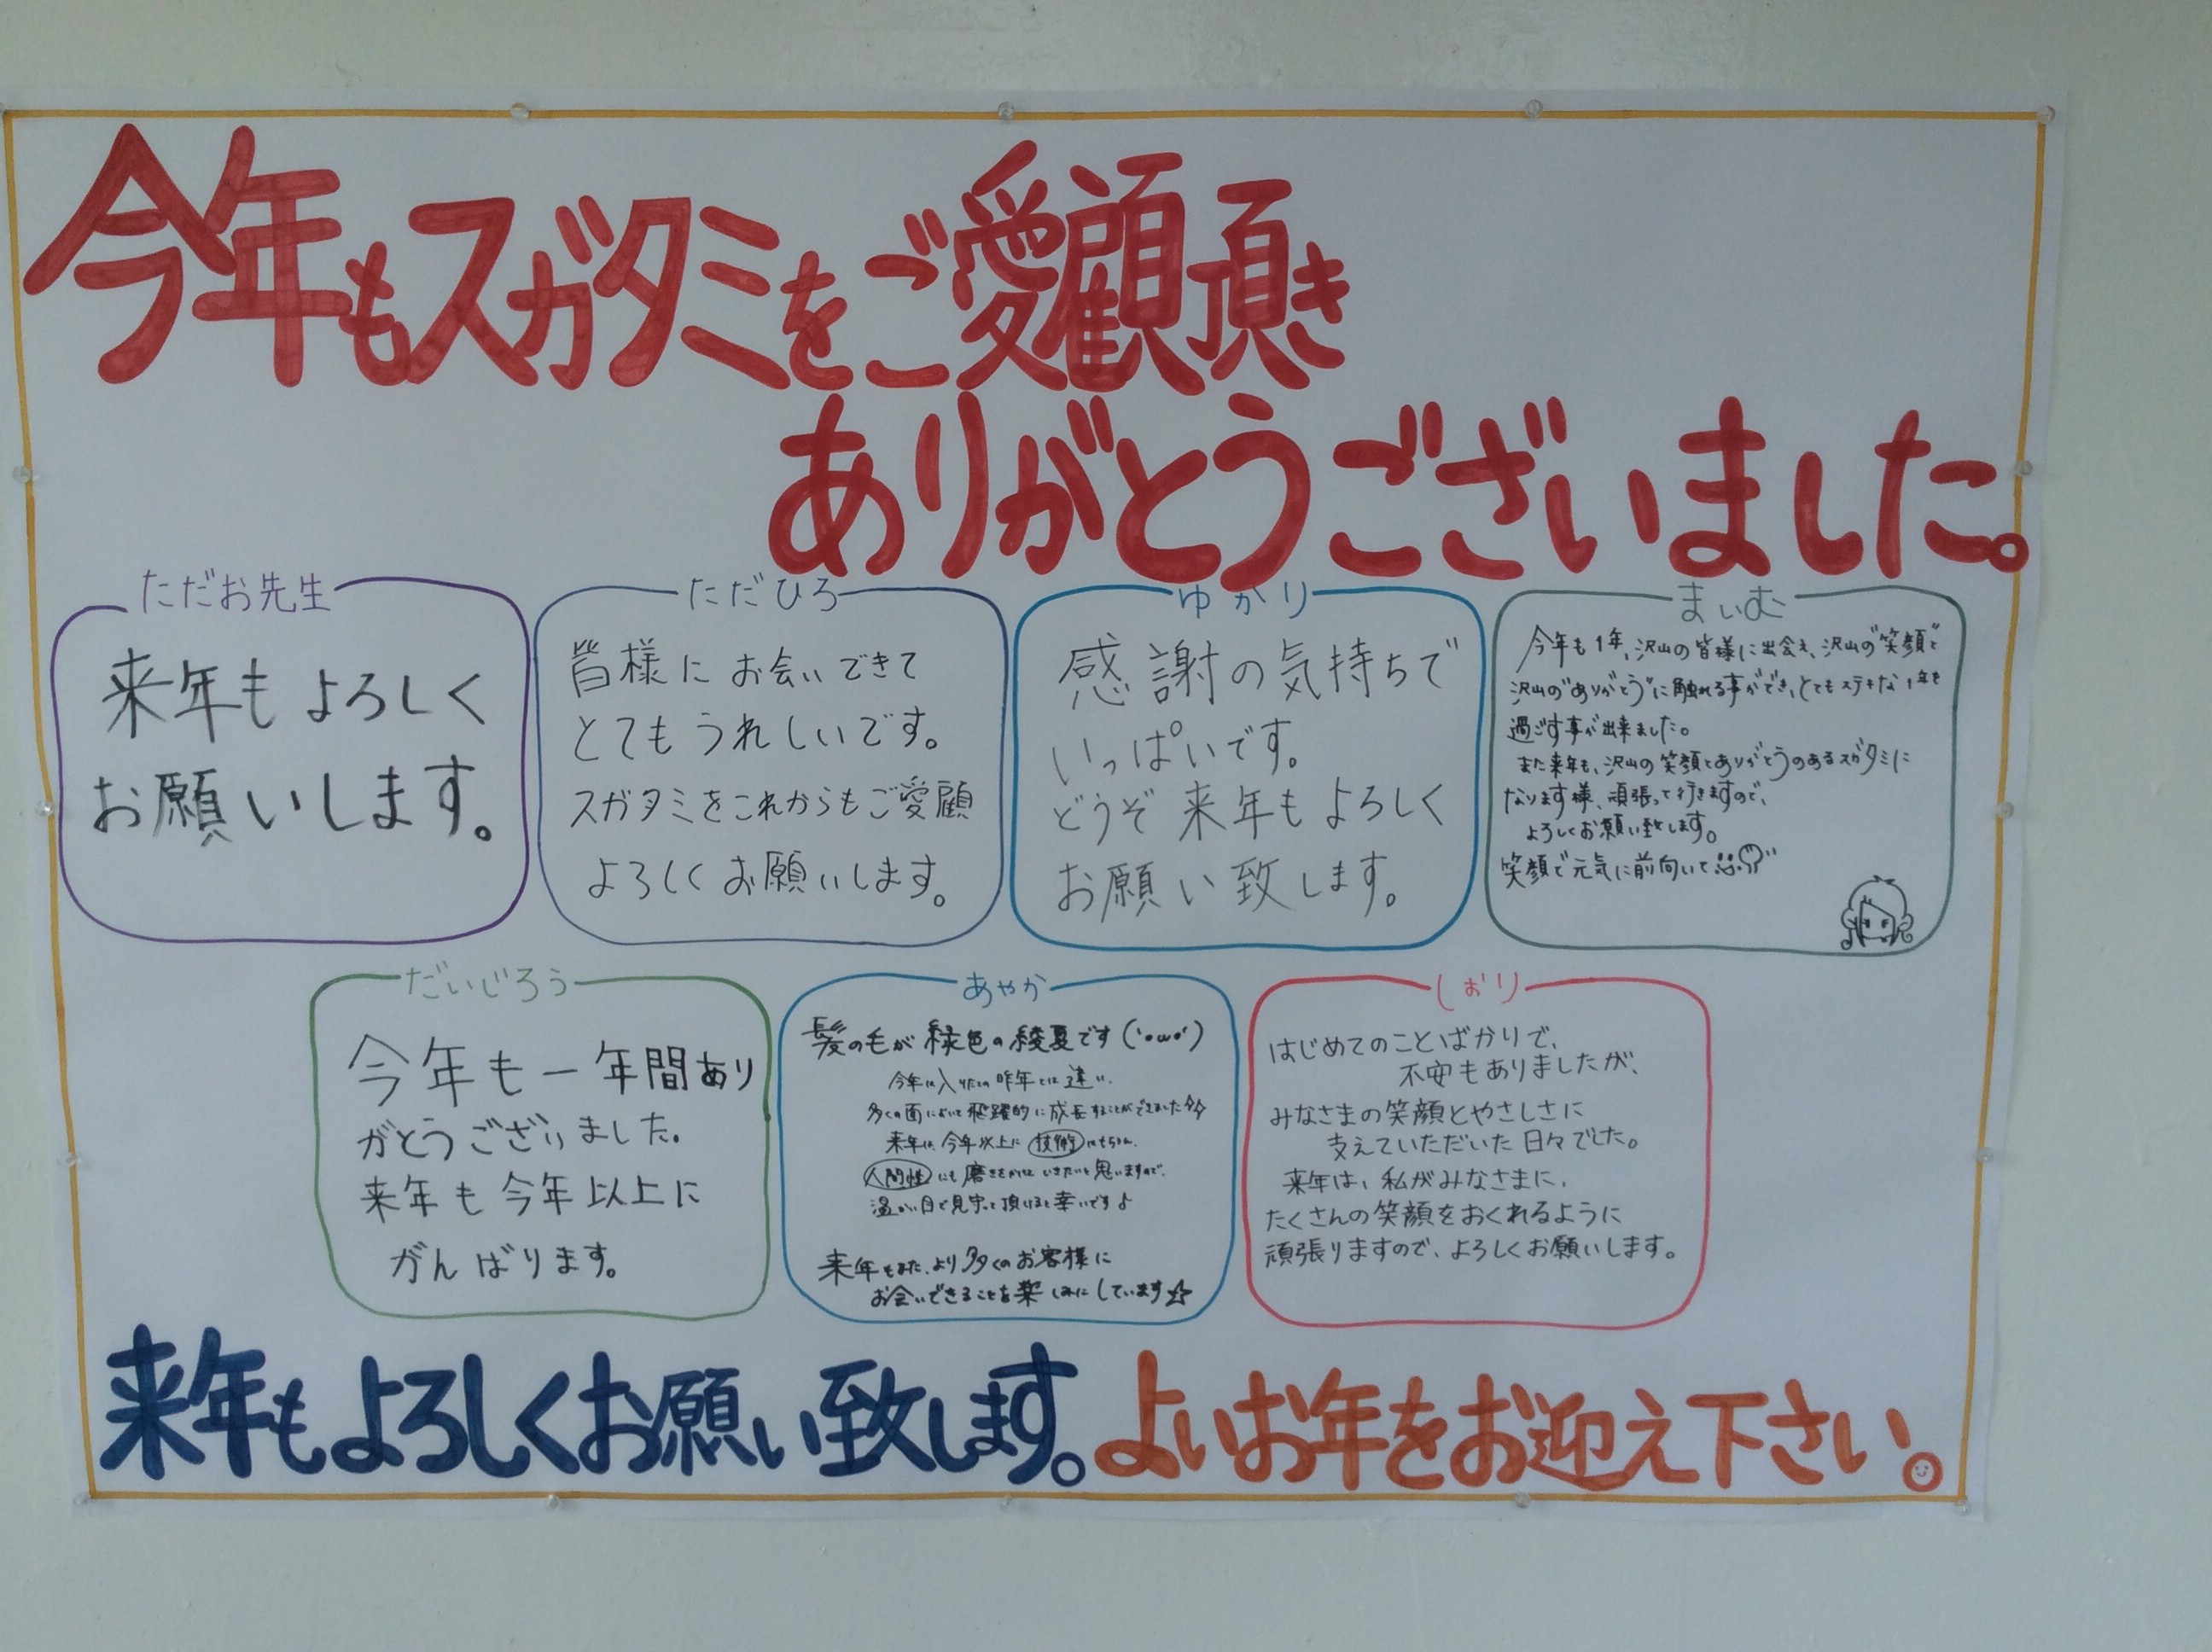 今年もスガタミをご愛顧頂き
ありがとうございました。
ただお先生
来年もよろしく
お願いします。
ただひろ
皆様にお会いできて
とてもうれしいです。
スガタミをこれからもご愛顧
よろしくお願いします。
ゆかり
感謝の気持ちで
いっぱいです。
どうぞ来年もよろしく
お願い致します。
まいむ
今年も1年、沢山の皆様に出会え、沢山の"笑顔"と
沢山の"ありがとう"に触れる事ができ、とてもステキな1年を
過ごす事が出来ました。
また来年も、沢山の笑顔とありがとうのあるスガタミに
なります様、頑張って行きますので、
よろしくお願い致します。
笑顔で元気に前向いて
だいじろう
今年も一年間あり
がとうございました。
来年も今年以上に
がんばります。
あやか
髪の毛が緑色の綾夏です(´・ω・`)
今年に入りたての昨年とは違い、
多くの面において飛躍的に成長することができました
来年は、今年以上に技術はもちろん、
人間性にも磨きをかけていきたいと思いますので、
温かい目で見守って頂けると幸いです♪
来年もまた、より多くのお客様に
お会いできることを楽しみにしています☆
しおり
はじめてのことばかりで、
不安もありましたが、
みなさまの笑顔とやさしさに
支えていただいた日々でした。
来年は、私がみなさまに、
たくさんの笑顔をおくれるように
頑張りますので、よろしくお願いします。
来年もよろしくお願い致します。よいお年をお迎え下さい。